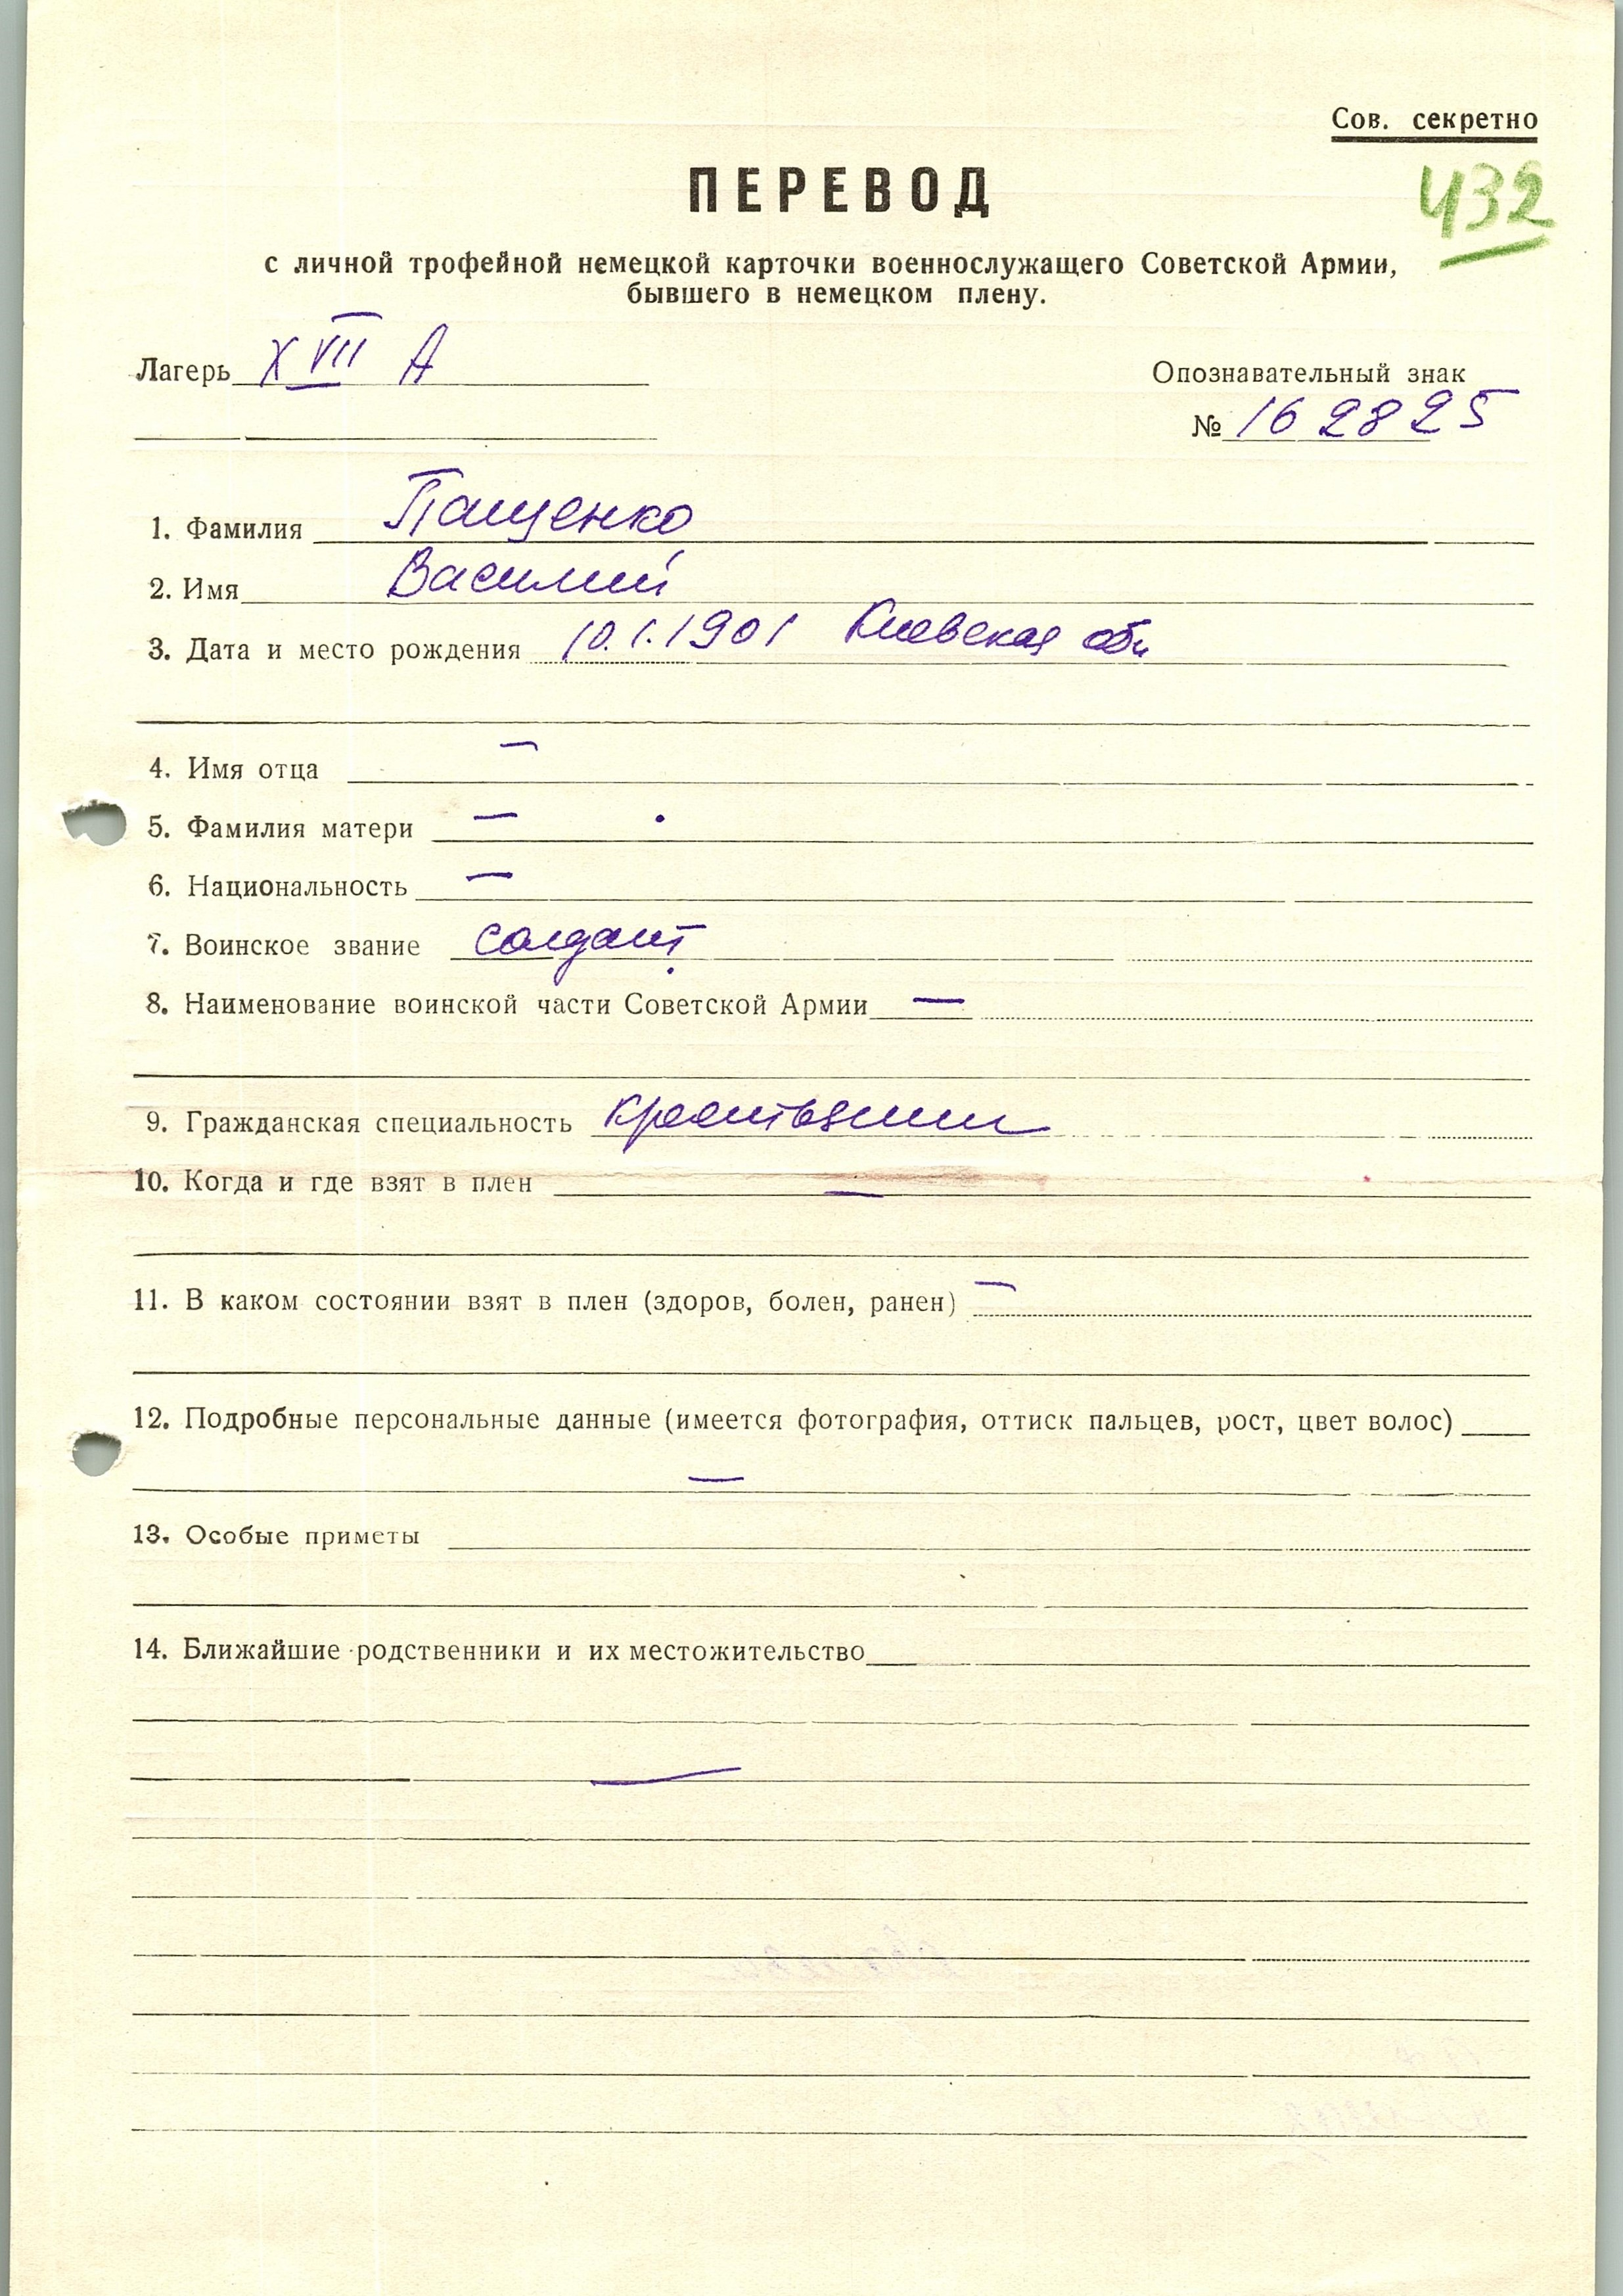 Сов. секретно
ПЕРЕВОД
432
с личной трофейной немецкой карточки военнослужащего Советской Армии,
бывшего в немецком плену.
Лагерь XVII А
Опознавательный знак
№ 162825
1. Фамилия Пащенко
2. Имя Василий
3. Дата и место рождения 10.1.1901 Киевская обл
4. Имя отца —
5. Фамилия матери —
6. Национальность —
7. Воинское звание солдат
8. Наименование воинской части Советской Армии —
9. Гражданская специальность крестьянин
10. Когда и где взят в плен —
11. В каком состоянии взят в плен (здоров, болен, ранен) —
12. Подробные персональные данные (имеется фотография, оттиск пальцев, рост, цвет волос)
—
13. Особые приметы
14. Ближайшие родственники и их местожительство
—